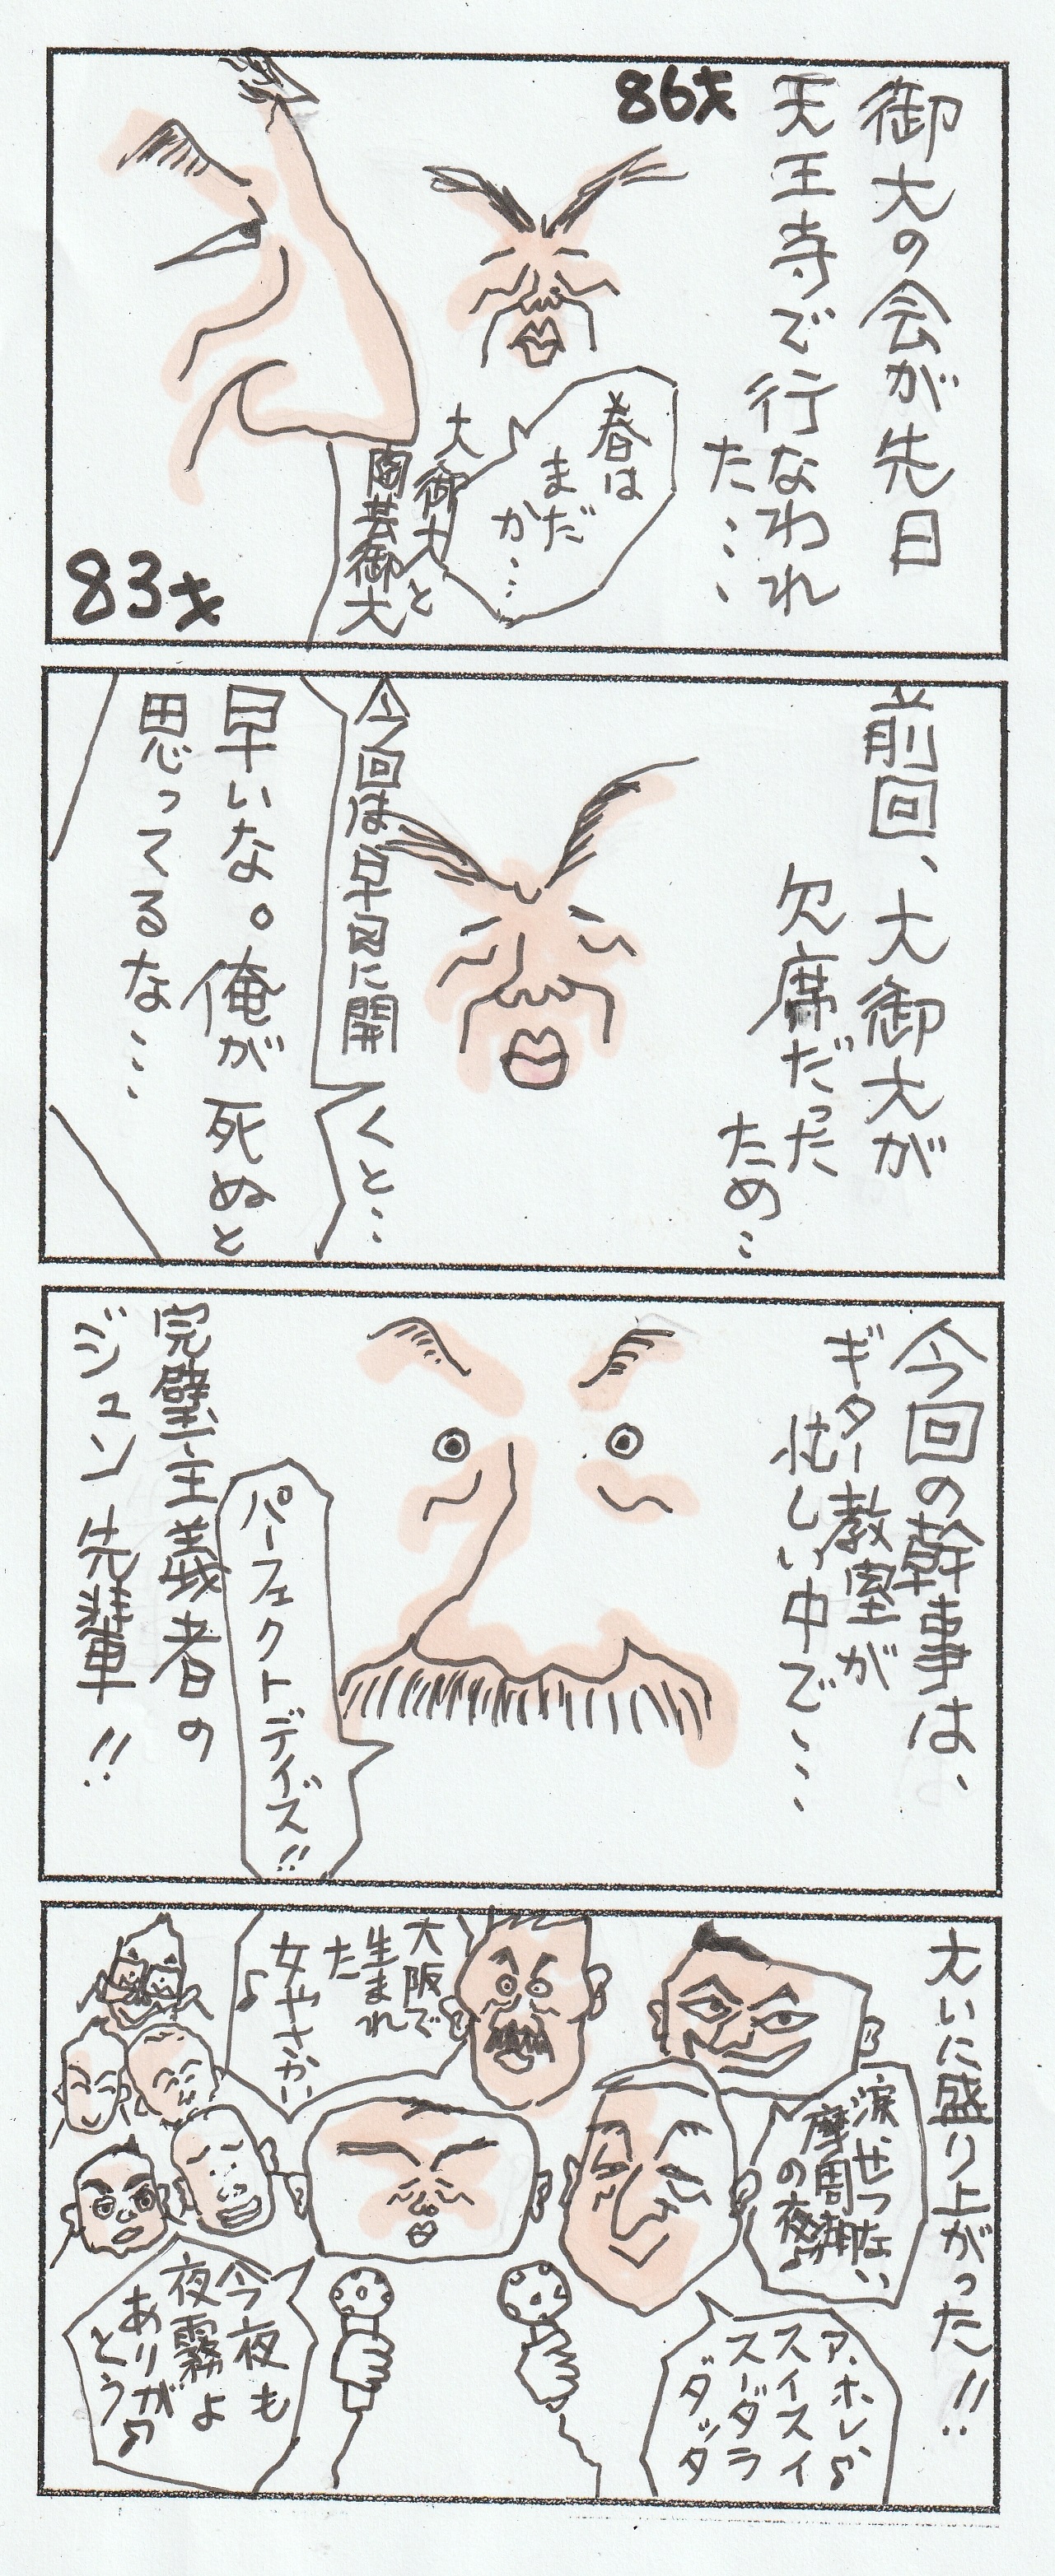 御大の会が先日
天王寺で行なわれ
た…
86才
春は
まだ
か…
大御大と
陶芸御大
83才
前回、大御大が
欠席だった
ため…
今回は早目に開
くと…
早いな。俺が死ぬと
思ってるな…
今回の幹事は、
ギター教室が
忙しい中で…
パーフェクトデイズ!!
完璧主義者の
ジュン先輩!!
大いに盛り上がった!!
涙せつない
摩周湖
の夜♪
大阪で
生まれ
た
女やさかい
♪
ア、ホレ♪
スイスイ
スーダラ
ダッタ
今夜も
夜霧よ
ありが
とう♪